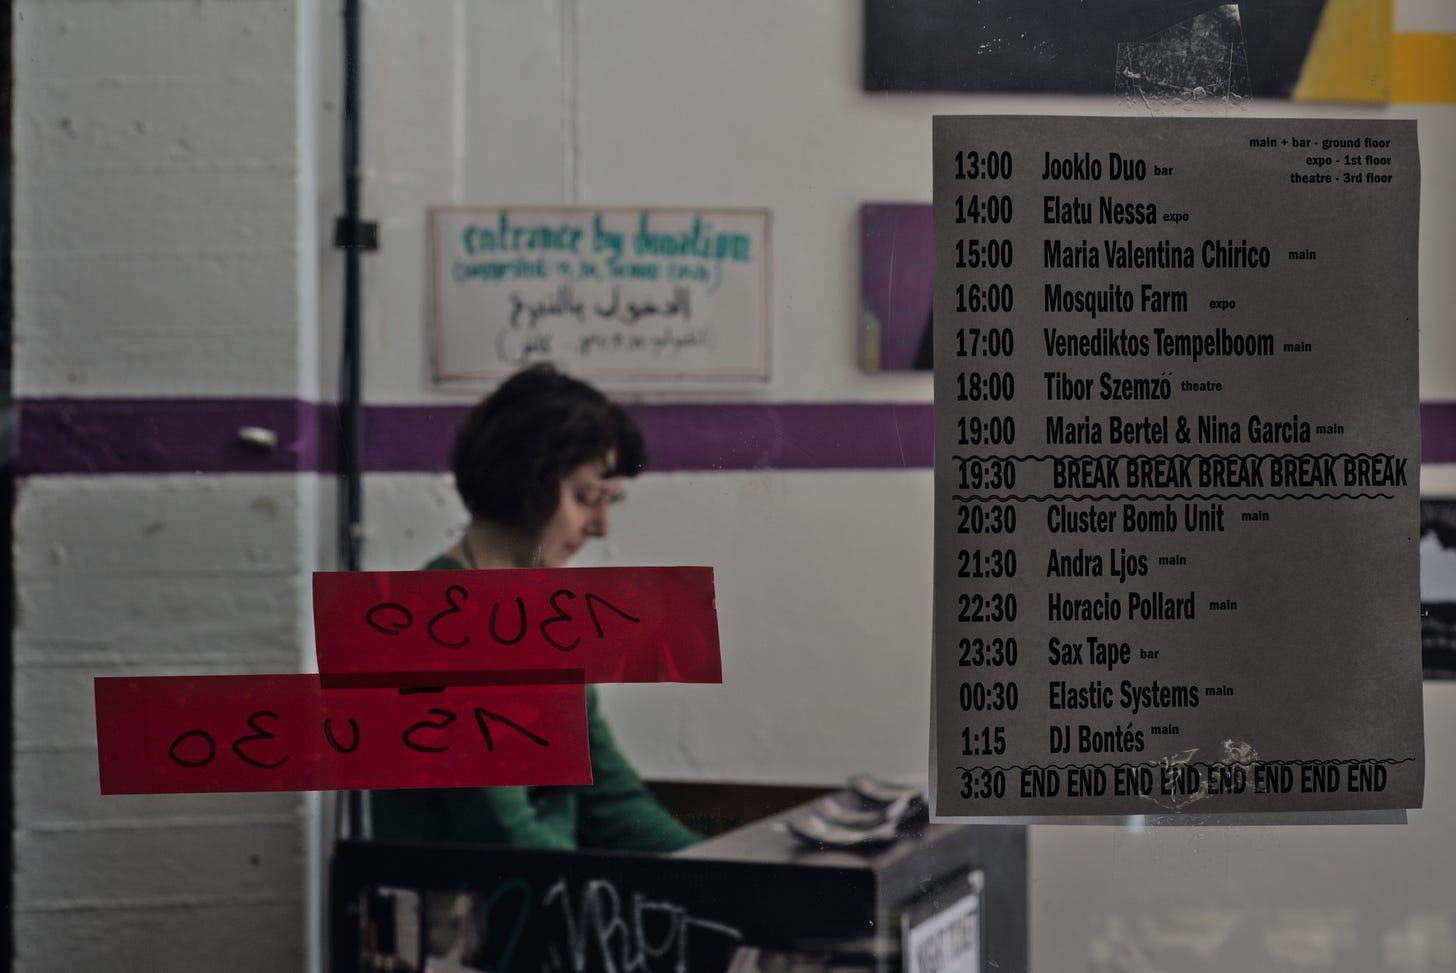 main + bar - ground floor
expo - 1st floor
theatre - 3rd floor
13:00 Jooklo Duo bar
14:00 Elatu Nessa expo
15:00 Maria Valentina Chirico main
16:00 Mosquito Farm expo
17:00 Venediktos Tempelboom main
18:00 Tibor Szemző theatre
19:00 Maria Bertel & Nina Garcia main
19:30 BREAK BREAK BREAK BREAK BREAK
20:30 Cluster Bomb Unit main
21:30 Andra Ljos main
22:30 Horacio Pollard main
23:30 Sax Tape bar
00:30 Elastic Systems main
1:15 DJ Bontés main
3:30 END END END END END END END END
entrance by donation
الدخول بالتبرع
13U30
15U30